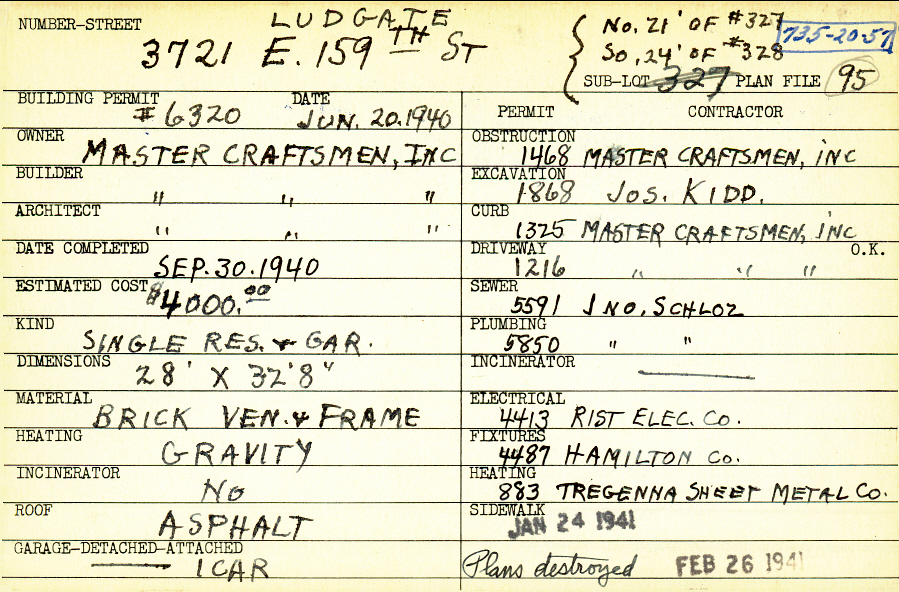 NUMBER-STREET LUDGATE
3721 E. 159TH ST
No. 21' OF #327
So. 24' OF #328
735-20-57
SUB-LOT 327 PLAN FILE 95
BUILDING PERMIT #6320 DATE JUN. 20. 1940
OWNER MASTER CRAFTSMEN, INC
BUILDER " " "
ARCHITECT " " "
DATE COMPLETED SEP. 30. 1940
ESTIMATED COST $4000.00
KIND SINGLE RES. & GAR.
DIMENSIONS 28' X 32'8"
MATERIAL BRICK VEN. & FRAME
HEATING GRAVITY
INCINERATOR No
ROOF ASPHALT
GARAGE-DETACHED-ATTACHED 1 CAR
PERMIT CONTRACTOR
OBSTRUCTION 1468 MASTER CRAFTSMEN, INC
EXCAVATION 1868 JOS. KIDD.
CURB 1325 MASTER CRAFTSMEN, INC
DRIVEWAY 1216 " " " O.K.
SEWER 5591 JNO. SCHLOZ
PLUMBING 5850 " "
INCINERATOR
ELECTRICAL 4413 RIST ELEC. Co.
FIXTURES 4487 HAMILTON Co.
HEATING 883 TREGENNA SHEET METAL Co.
SIDEWALK JAN 24 1941
Plans destroyed FEB 26 1941